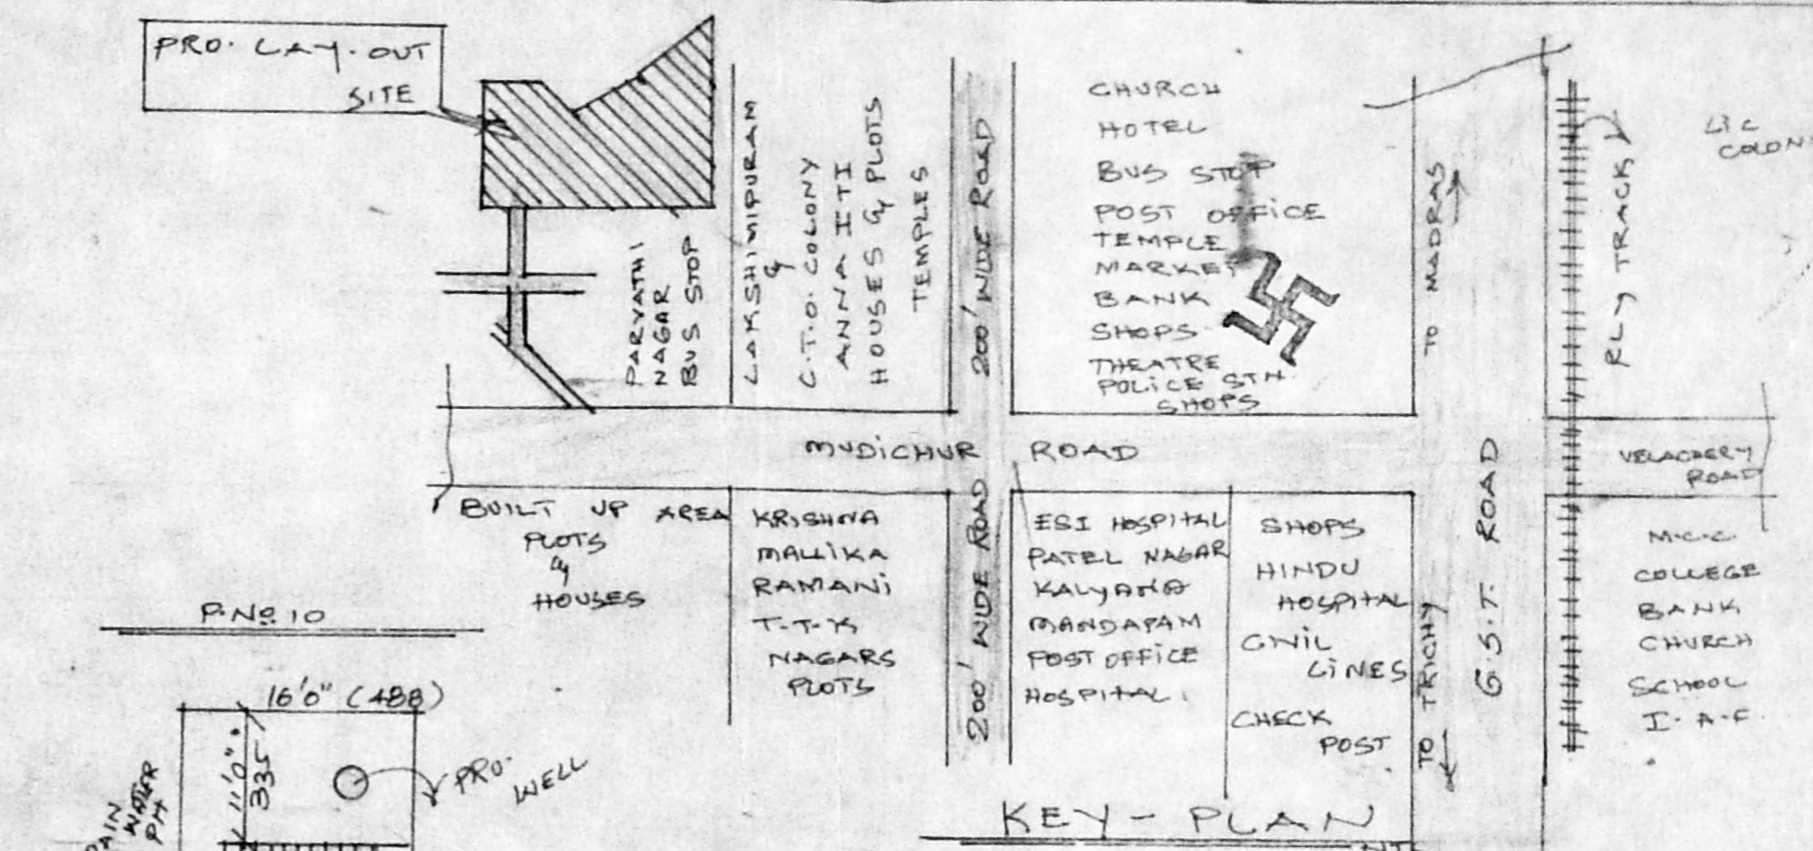 PRO. LAY. OUT
SITE
PARVATHI
NAGAR
BUS STOP
LAKSHMIPURAM
&
C.T.O. COLONY
ANNA ITI
HOUSES & PLOTS
TEMPLES
200' WIDE ROAD
CHURCH
HOTEL
BUS STOP
POST OFFICE
TEMPLE
MARKET
BANK
SHOPS
THEATRE
POLICE STN
SHOPS
TO MADRAS
RLY TRACK
LIC
MUDICHUR ROAD
VELACHERY
ROAD
BUILT UP AREA
PLOTS
&
HOUSES
KRISHNA
MALLIKA
RAMANI
T.T.K
NAGARS
PLOTS
200' WIDE ROAD
ESI HOSPITAL
PATEL NAGAR
KALYANA
MANDAPAM
POST OFFICE
HOSPITAL.
SHOPS
HINDU
HOSPITAL
CIVIL
LINES
CHECK
POST
TO TRICHY
G.S.T. ROAD
M.C.C.
COLLEGE
BANK
CHURCH
SCHOOL
I.A.F.
P.No 10
16'0" (488)
11'0"
335
PRO.
WELL
WATER
KEY - PLAN